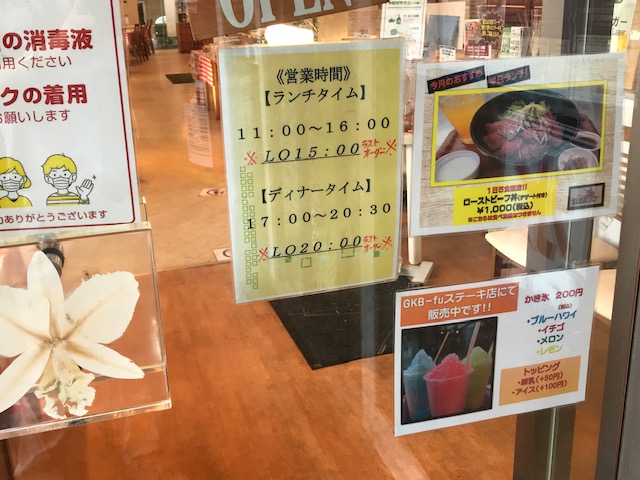 OPEN
の消毒液
用ください
クの着用
お願いします
ありがとうございます
《営業時間》
【ランチタイム】
11:00〜16:00
※LO15:00 ラスト
オーダー※
【ディナータイム】
17:00〜20:30
※LO20:00 ラスト
オーダー※
今月のおすすめ 平日ランチ!
1日5食限定!!
ローストビーフ丼(デザート付き)
¥1,000(税込)
GKB-fuステーキ店にて
販売中です!!
かき氷 200円
(税込)
・ブルーハワイ
・イチゴ
・メロン
・レモン
トッピング
・練乳(+50円)
・アイス(+100円)